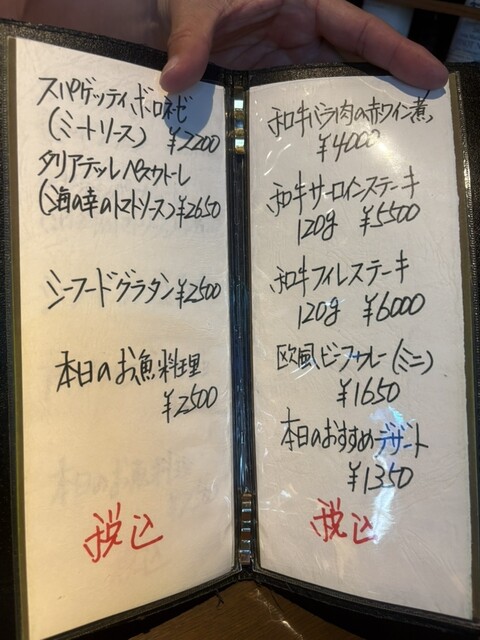 スパゲッティ ボロネゼ
(ミートソース) ¥2200
タリアテッレ ペスカトーレ
(海の幸のトマトソース) ¥2650
シーフードグラタン ¥2500
本日のお魚料理
¥2500
税込
和牛バラ肉の赤ワイン煮
¥4000
和牛サーロインステーキ
120g ¥5500
和牛フィレステーキ
120g ¥6000
欧風ビーフカレー(ミニ)
¥1650
本日のおすすめデザート
¥1350
税込